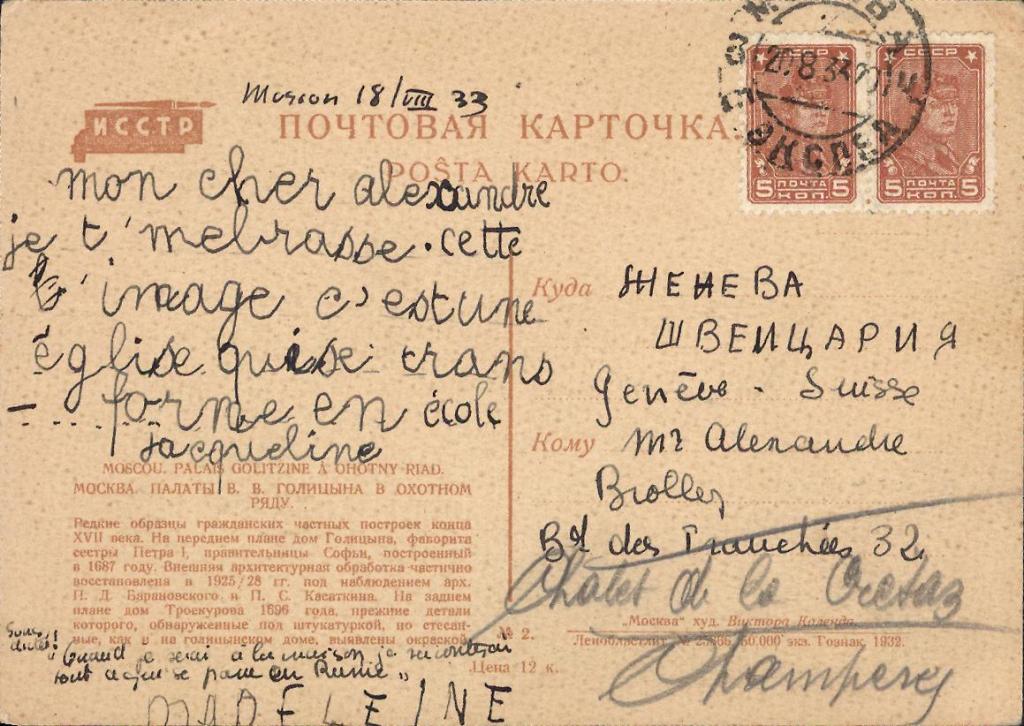 Moscou 18/VIII 33
ИССТР
ПОЧТОВАЯ КАРТОЧКА.
POŜTA KARTO.
СССР
5 ПОЧТА КОП. 5
СССР
5 ПОЧТА КОП. 5
20.8.33
МОСКВА
mon cher alexandre
je t'melrasse. cette
l'image c'est une
église qui se trans
forme en école
jacqueline
Куда ЖЕНЕВА
ШВЕИЦАРИЯ
Genève - Suisse
Кому Mr Alexandre
Bd des Tranchées 32
Chalet de la
Champery
MOSCOU. PALAIS GOLITZINE À OHOTNY-RIAD.
МОСКВА. ПАЛАТЫ В. В. ГОЛИЦЫНА В ОХОТНОМ
РЯДУ.
Редкие образцы гражданских частных построек конца
XVII века. На переднем плане дом Голицына, фаворита
сестры Петра I, правительницы Софьи, построенный
в 1687 году. Внешняя архитектурная обработка частично
восстановлена в 1925/28 гг. под наблюдением арх.
П. Д. Барановского и П. С. Касаткина. На заднем
плане дом Троекурова 1696 года, прежние детали
которого, обнаруженные под штукатуркой, но стесан-
ные, как и на голицынском доме, выявлены окраской.
№ 2.
Цена 12 к.
„Москва" худ. Виктора Календа.
Ленобластлит № 60.000 экз. Гознак, 1932.
Sous
dictée:
"Quand je serai à la maison je raconterai
tout ce qui se passe en Russie"
MADELEINE